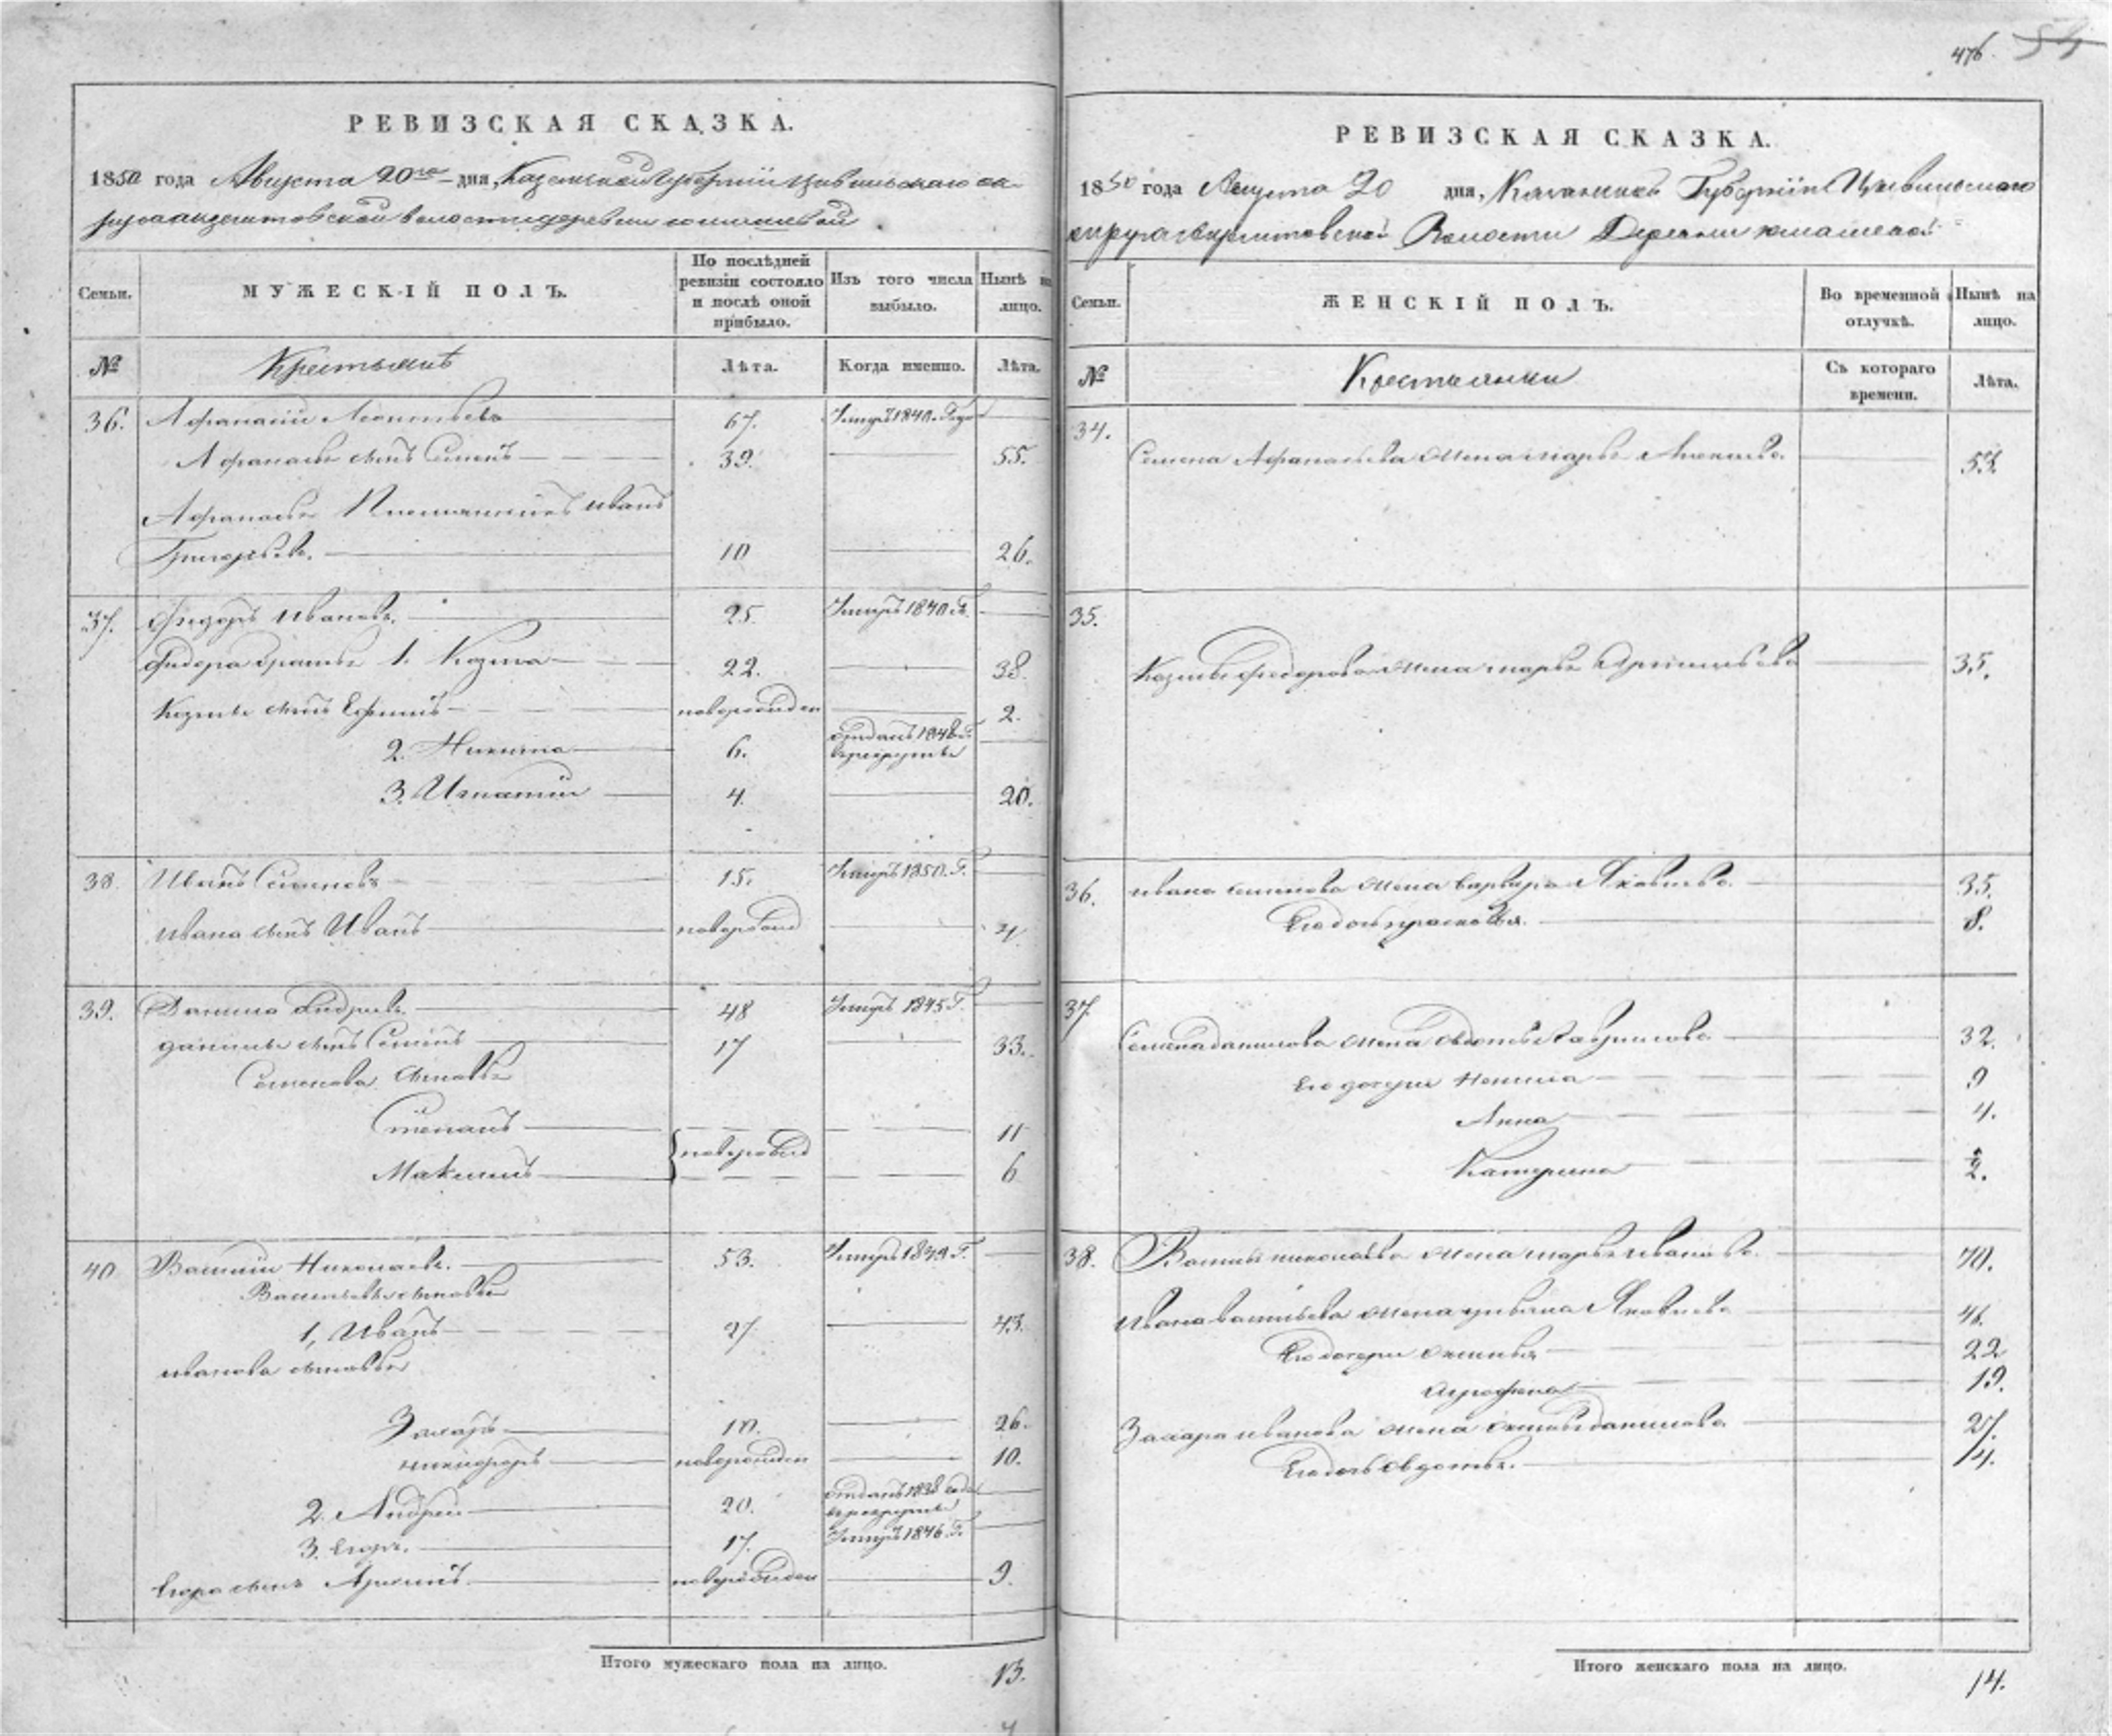 476. 54
РЕВИЗСКАЯ СКАЗКА.
1850 года Августа 20го дня, Казанской Губернии Цивильскаго ок-
волости деревни Юмашевой
Семьи.
МУЖЕСКІЙ ПОЛЪ.
По послѣдней ревизіи состояло и послѣ оной прибыло.
Изъ того числа выбыло.
Нынѣ на лицо.
№
Крестьянъ
Лѣта.
Когда именно.
Лѣта.
36. Афанасій Леонтьевъ 67. Умеръ 1840. Года
Афанасья сынъ Семенъ 39. 55.
Афанасья Племянникъ Иванъ
Григорьевъ. 10 26.
37. Федоръ Ивановъ. 25. Умеръ 1840. Г.
Федора братья 1. Козма 22. 38
Козмы сынъ Ефимъ новорожден 2.
2. Никита 6. Отданъ 1848 Г. в рекруты
3. Игнатій 4. 20.
38. Иванъ Семеновъ 15. Умеръ 1850. Г.
Ивана сынъ Иванъ новорожд 4
39. Данила Андреевъ. 48 Умеръ 1845 Г.
Данилы сынъ Семенъ 17 33.
Семенова сыновья
Степанъ 11
новорожд
Максимъ 6
40 Василій Николаевъ. 53. Умеръ 1849 Г.
Васильевы сыновья
1, Иванъ 27 43.
Иванова сыновья
Захаръ 10. 26.
Никифоръ новорожден 10.
2. Андрей 20. Отданъ 1838 года в рекруты
3. Егоръ. 17. Умеръ 1846. Г.
Егора сынъ Архипъ новорожден 9.
Итого мужескаго пола на лицо. 13.
РЕВИЗСКАЯ СКАЗКА.
1850 года Августа 20 дня, Казанской Губерніи Цивильскаго
округа Волости Деревни Юмашевой
Семьи.
ЖЕНСКІЙ ПОЛЪ.
Во временной отлучкѣ.
Нынѣ на лицо.
№
Крестьянки
Съ котораго времени.
Лѣта.
34.
Семена Афанасьева жена Марья 53.
35.
Козмы Федорова жена Марья 35.
36. Ивана Семенова жена Варвара Яковлева. 35.
Его дочь Прасковья. 8.
37.
Семена Данилова жена Авдотья Гаврилова 32.
Его дочери 9
Анна 4.
Катерина 1/2.
38. Василья Николаева жена Марья Иванова. 70.
Ивана Васильева жена Ульяна Яковлева 46.
Его дочери Аксинья 22
Аграфена 19.
Захара Иванова жена Данилова 27.
Его дочь Авдотья. 1/4.
Итого женскаго пола на лицо. 14.